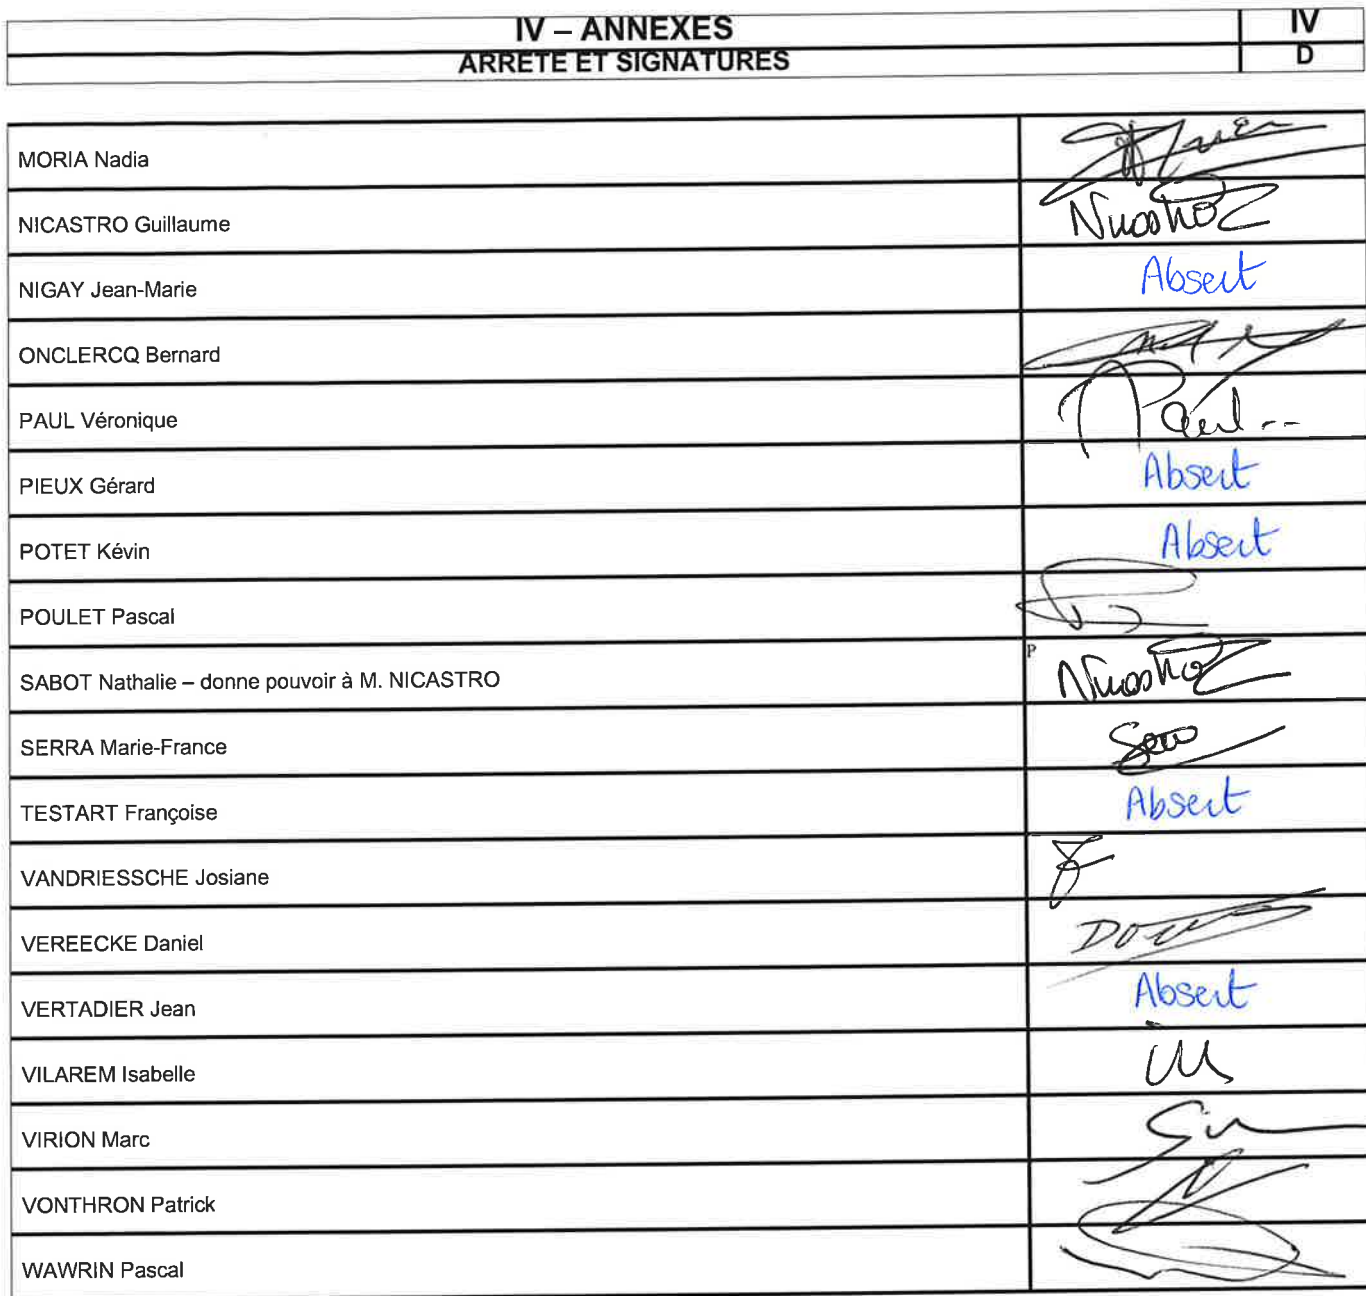 IV – ANNEXES IV
ARRETE ET SIGNATURES D
MORIA Nadia
NICASTRO Guillaume Nicastro
NIGAY Jean-Marie Absent
ONCLERCQ Bernard
PAUL Véronique Paul
PIEUX Gérard Absent
POTET Kévin Absent
POULET Pascal
SABOT Nathalie – donne pouvoir à M. NICASTRO P Nicastro
SERRA Marie-France
TESTART Françoise Absent
VANDRIESSCHE Josiane
VEREECKE Daniel
VERTADIER Jean Absent
VILAREM Isabelle
VIRION Marc
VONTHRON Patrick
WAWRIN Pascal